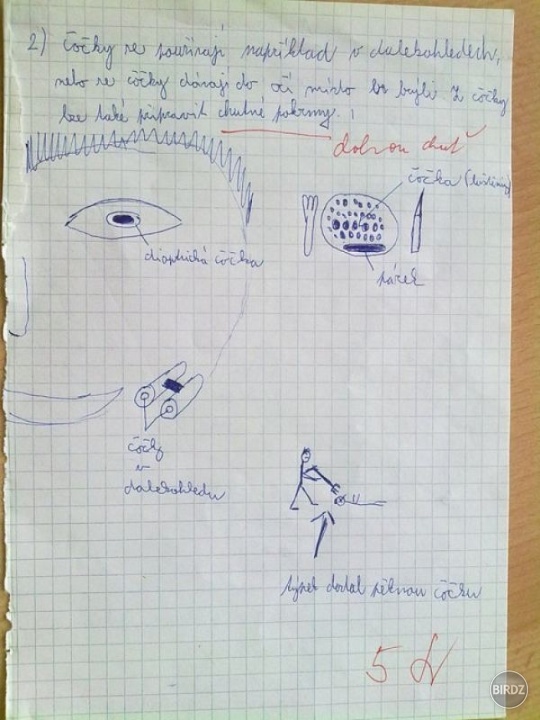 2) Čočky se používají například v dalekohledech,
nebo se čočky dávají do očí místo brýlí. Z čočky
lze také připravit chutné pokrmy.
dobrou chuť
čočka (luštěnina)
dioptrická čočka
párek
čočky
v
dalekohledu
týpek dostal pěknou čočku
5
BIRDZ